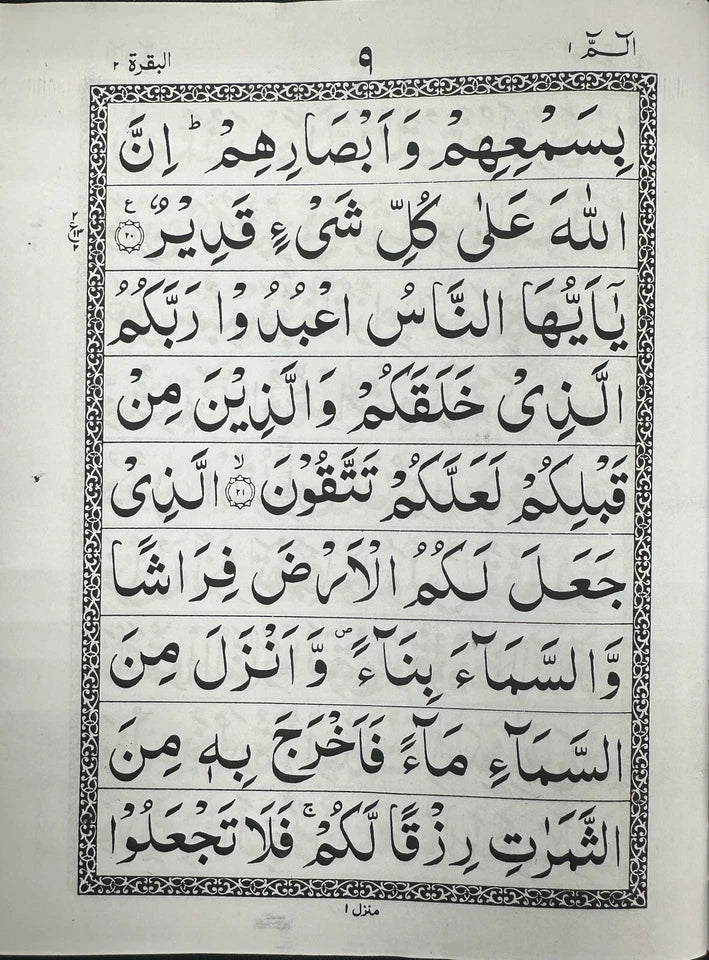 الٓـمّٓ ١
٩
البقرة ٢
بِسَمْعِهِمْ وَاَبْصَارِهِمْ ؕ اِنَّ
اللّٰهَ عَلٰى كُلِّ شَىْءٍ قَدِيْرٌ ۧ ﴿٢٠﴾
يٰۤاَيُّهَا النَّاسُ اعْبُدُوْا رَبَّكُمُ
الَّذِىْ خَلَقَكُمْ وَالَّذِيْنَ مِنْ
قَبْلِكُمْ لَعَلَّكُمْ تَتَّقُوْنَ ۙ ﴿٢١﴾ الَّذِىْ
جَعَلَ لَكُمُ الْاَرْضَ فِرَاشًا
وَّالسَّمَآءَ بِنَآءً ۪ وَّاَنْزَلَ مِنَ
السَّمَآءِ مَآءً فَاَخْرَجَ بِهٖ مِنَ
الثَّمَرٰتِ رِزْقًا لَّكُمْ ۚ فَلَا تَجْعَلُوْا
منزل ١